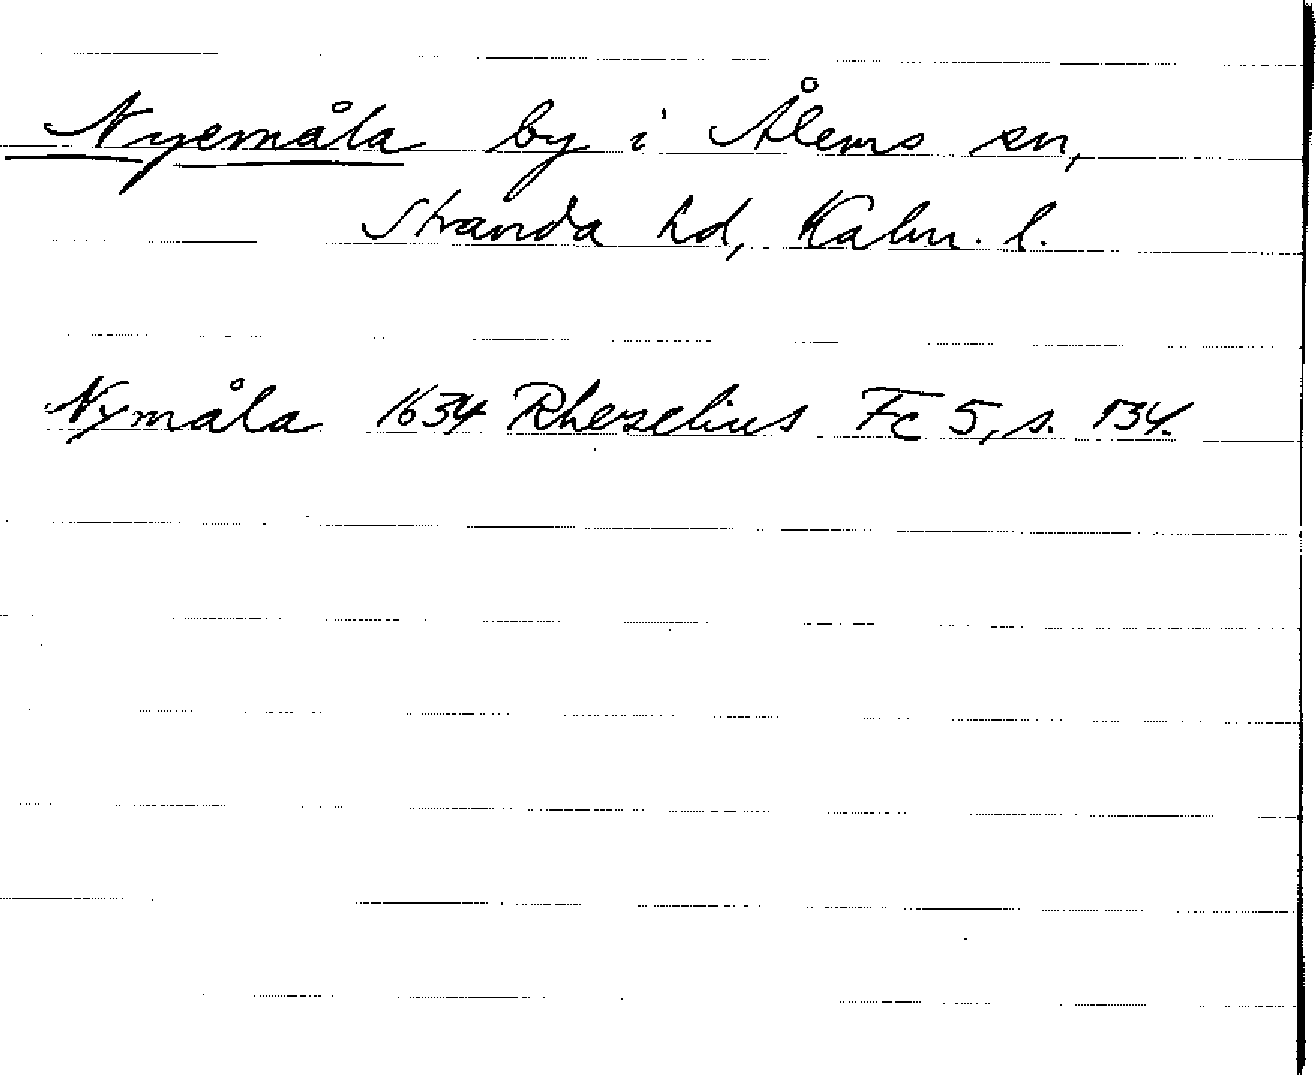 Nyemåla by i Ålems sn,
Stranda hd, Kalm. l.
Nymåla 1634 Rhezelius Fc 5, s. 134.